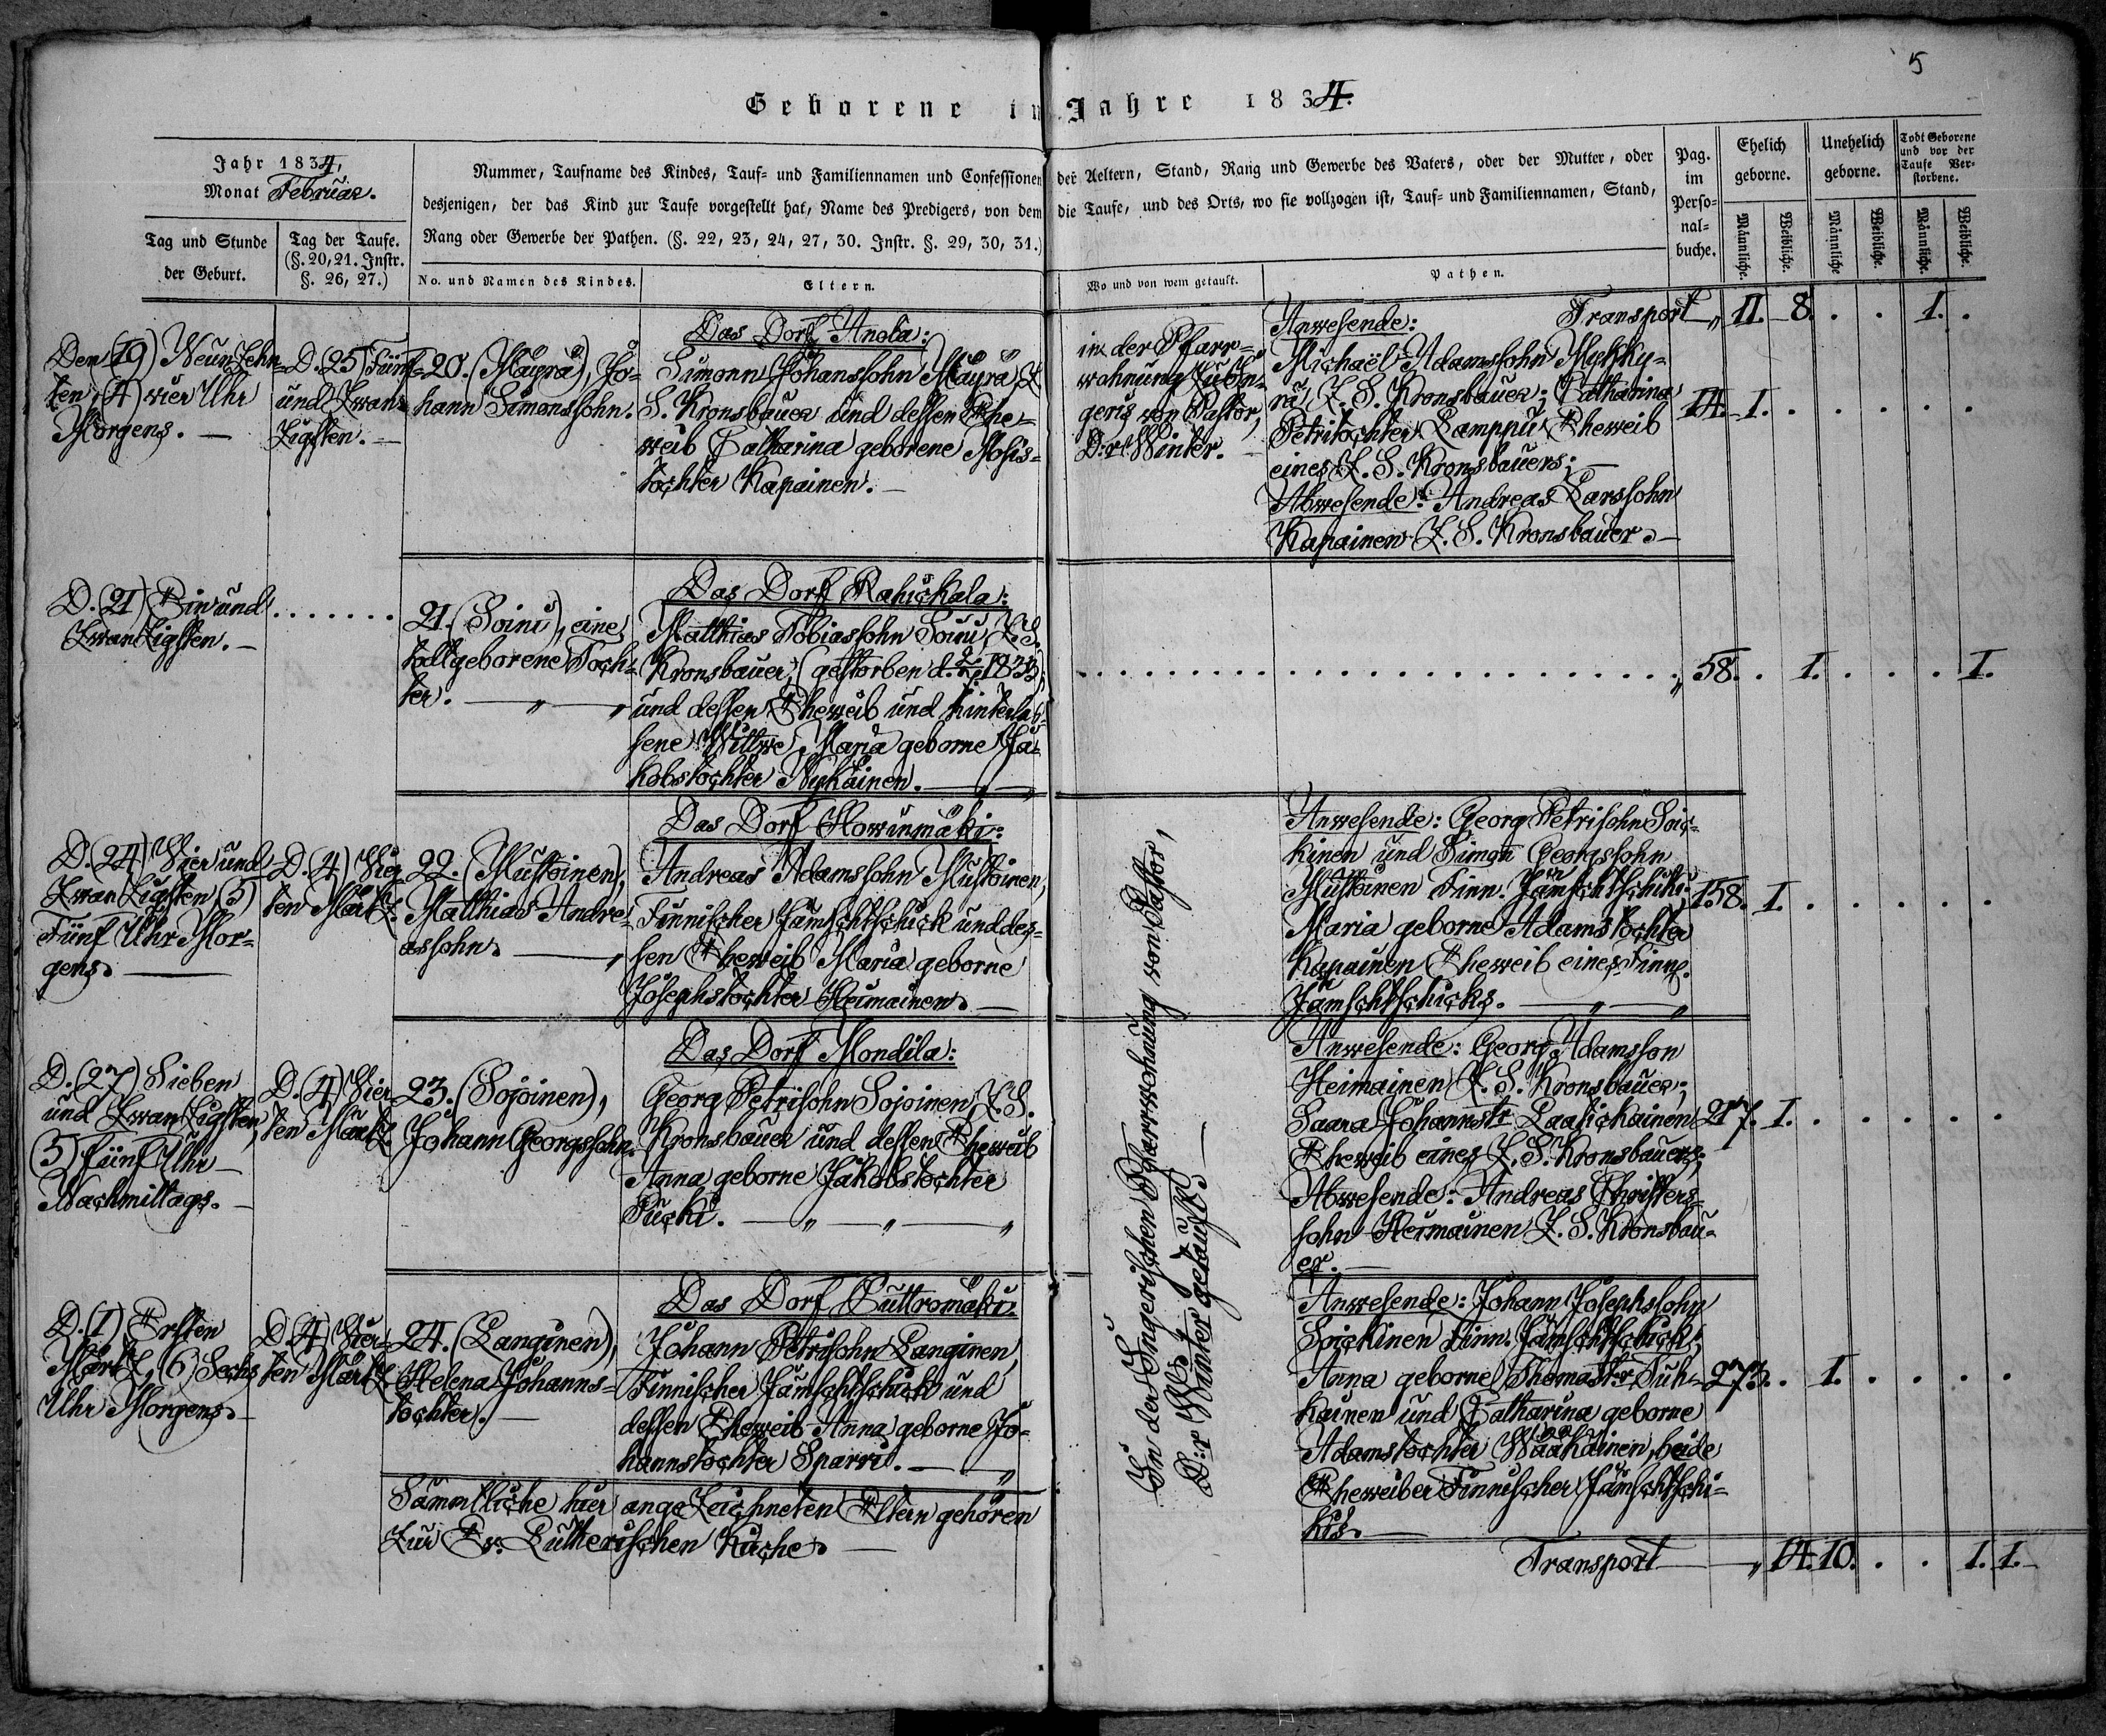 5
Geborene im Jahre 1834.
Jahr 1834,
Monat Februar.
Tag und Stunde
der Geburt.
Tag der Taufe.
(§. 20, 21. Instr.
§. 26, 27.)
Nummer, Taufname des Kindes, Tauf- und Familiennamen und Confessionen der Aeltern, Stand, Rang und Gewerbe des Vaters, oder der Mutter, oder
desjenigen, der das Kind zur Taufe vorgestellt hat, Name des Predigers, von dem die Taufe, und des Orts, wo sie vollzogen ist, Tauf- und Familiennamen, Stand,
Rang oder Gewerbe der Pathen. (§. 22, 23, 24, 27, 30. Instr. §. 29, 30, 31.)
No. und Namen des Kindes.
Eltern.
Wo und von wem getauft.
Pathen.
Pag.
im
Perso-
nal-
buche.
Ehelich
geborne.
Unehelich
geborne.
Todt Geborene
und vor der
Taufe Ver-
storbene.
Männliche.
Weibliche.
Männliche
Weibliche.
Männliche.
Weibliche.
Transport „ 11. 8. . . 1. .
Den (19) Neunzehn-
ten, (4) vier Uhr
Morgens. —
D. (25) Fünf-
und Zwan-
zigsten. —
20. (Mäyrä), Jo-
hann Simonssohn.
Das Dorf Anola:
Simon Johanssohn Mäyrä Z.
S. Kronsbauer und dessen Ehe-
weib Catharina geborene Mosis-
tochter Kapainen. —
in der Pfarr-
wohnung
geris von Pastor,
D:r Winter. —
Anwesende:
Michaël Adamssohn Mykky-
rä, Z. S. Kronsbauer; Catharina
Petritochter Lamppu Eheweib
eines Z. S. Kronsbauers; —
Abwesende: Andreas Larssohn
Kapainen Z. S. Kronsbauer. —
14. 1. . . . . .
D. (21) Ein und
Zwanzigsten. —
. . . . . . .
21. (Soini), eine
todtgeborene Toch-
ter. — „ — „
Das Dorf Rahickala:
Matthias Tobiassohn Soini, Z. S.
Kronsbauer, (gestorben d. 1833,
und dessen Eheweib und hinterlas-
sene Wittwe, Maria geborne Ja-
kobstochter Nykäinen. — „ — „
„ 58. . 1. . . . 1.
D. (24) Vier und
Zwanzigsten (5)
Fünf Uhr Mor-
gens. —
D. (4) Vier-
ten März.
22. (Mustoinen),
Matthias Andre-
assohn. — „
Das Dorf Howinmäki:
Andreas Adamssohn Mustoinen,
Finnischer Jämschtschick und des-
sen Eheweib Maria geborne
Josephstochter Heimainen. —
In der Ingerischen Pfarrwohnung von Pastor,
D:r Winter getauft. —
Anwesende: Georg Petrisohn Soic-
kinen und Simon Georgssohn
Mustoinen Finn. Jämschtschiks;
Maria geborne Adamstochter
Kapainen Eheweib eines Finn.
Jämschtschicks. — „ — „
158. 1. . . . . .
D. (27) Sieben
und Zwanzigsten,
(5) fünf Uhr
Nachmittags. —
D. (4) Vier-
ten März.
23. (Sojoinen),
Johann Georgssohn.
Das Dorf Mondila:
Georg Petrisohn Sojoinen, Z. S.
Kronsbauer und dessen Eheweib
Anna geborne Jakobstochter
Pucki. — „ — „ — „
Anwesende: Georg Adamsson
Heimainen Z. S. Kronsbauer;
Saara Johannstr Laasickainen
Eheweib eines Z. S. Kronsbauers;
Abwesende: Andreas Christers-
sohn Heimainen Z. S. Kronsbau-
er. —
217. 1. . . . . .
D. (1) Ersten
März, (6) Sechs
Uhr Morgens. —
D. (4) Vier-
ten März
24. (Langinen),
Helena Johanns-
tochter. —
Das Dorf Puttromäki:
Johann Petrisohn Langinen,
Finnischer Jämschtschick und
dessen Eheweib Anna geborne Jo-
hannstochter Sparri. — „
Anwesende: Johann Josephssohn
Soickinen Finn. Jämschtschick;
Anna geborne Thomast:r Tuh-
kainen und Catharina geborne
Adamstochter Wääkäinen, beide
Eheweiber Finnischer Jämschtschi-
cks. —
273. . 1. . . . .
Sämmtliche hier angezeichneten Eltern gehören
zur Ev. Lutherischen Kirche. —
Transport — „ 14. 10. . . 1. 1.